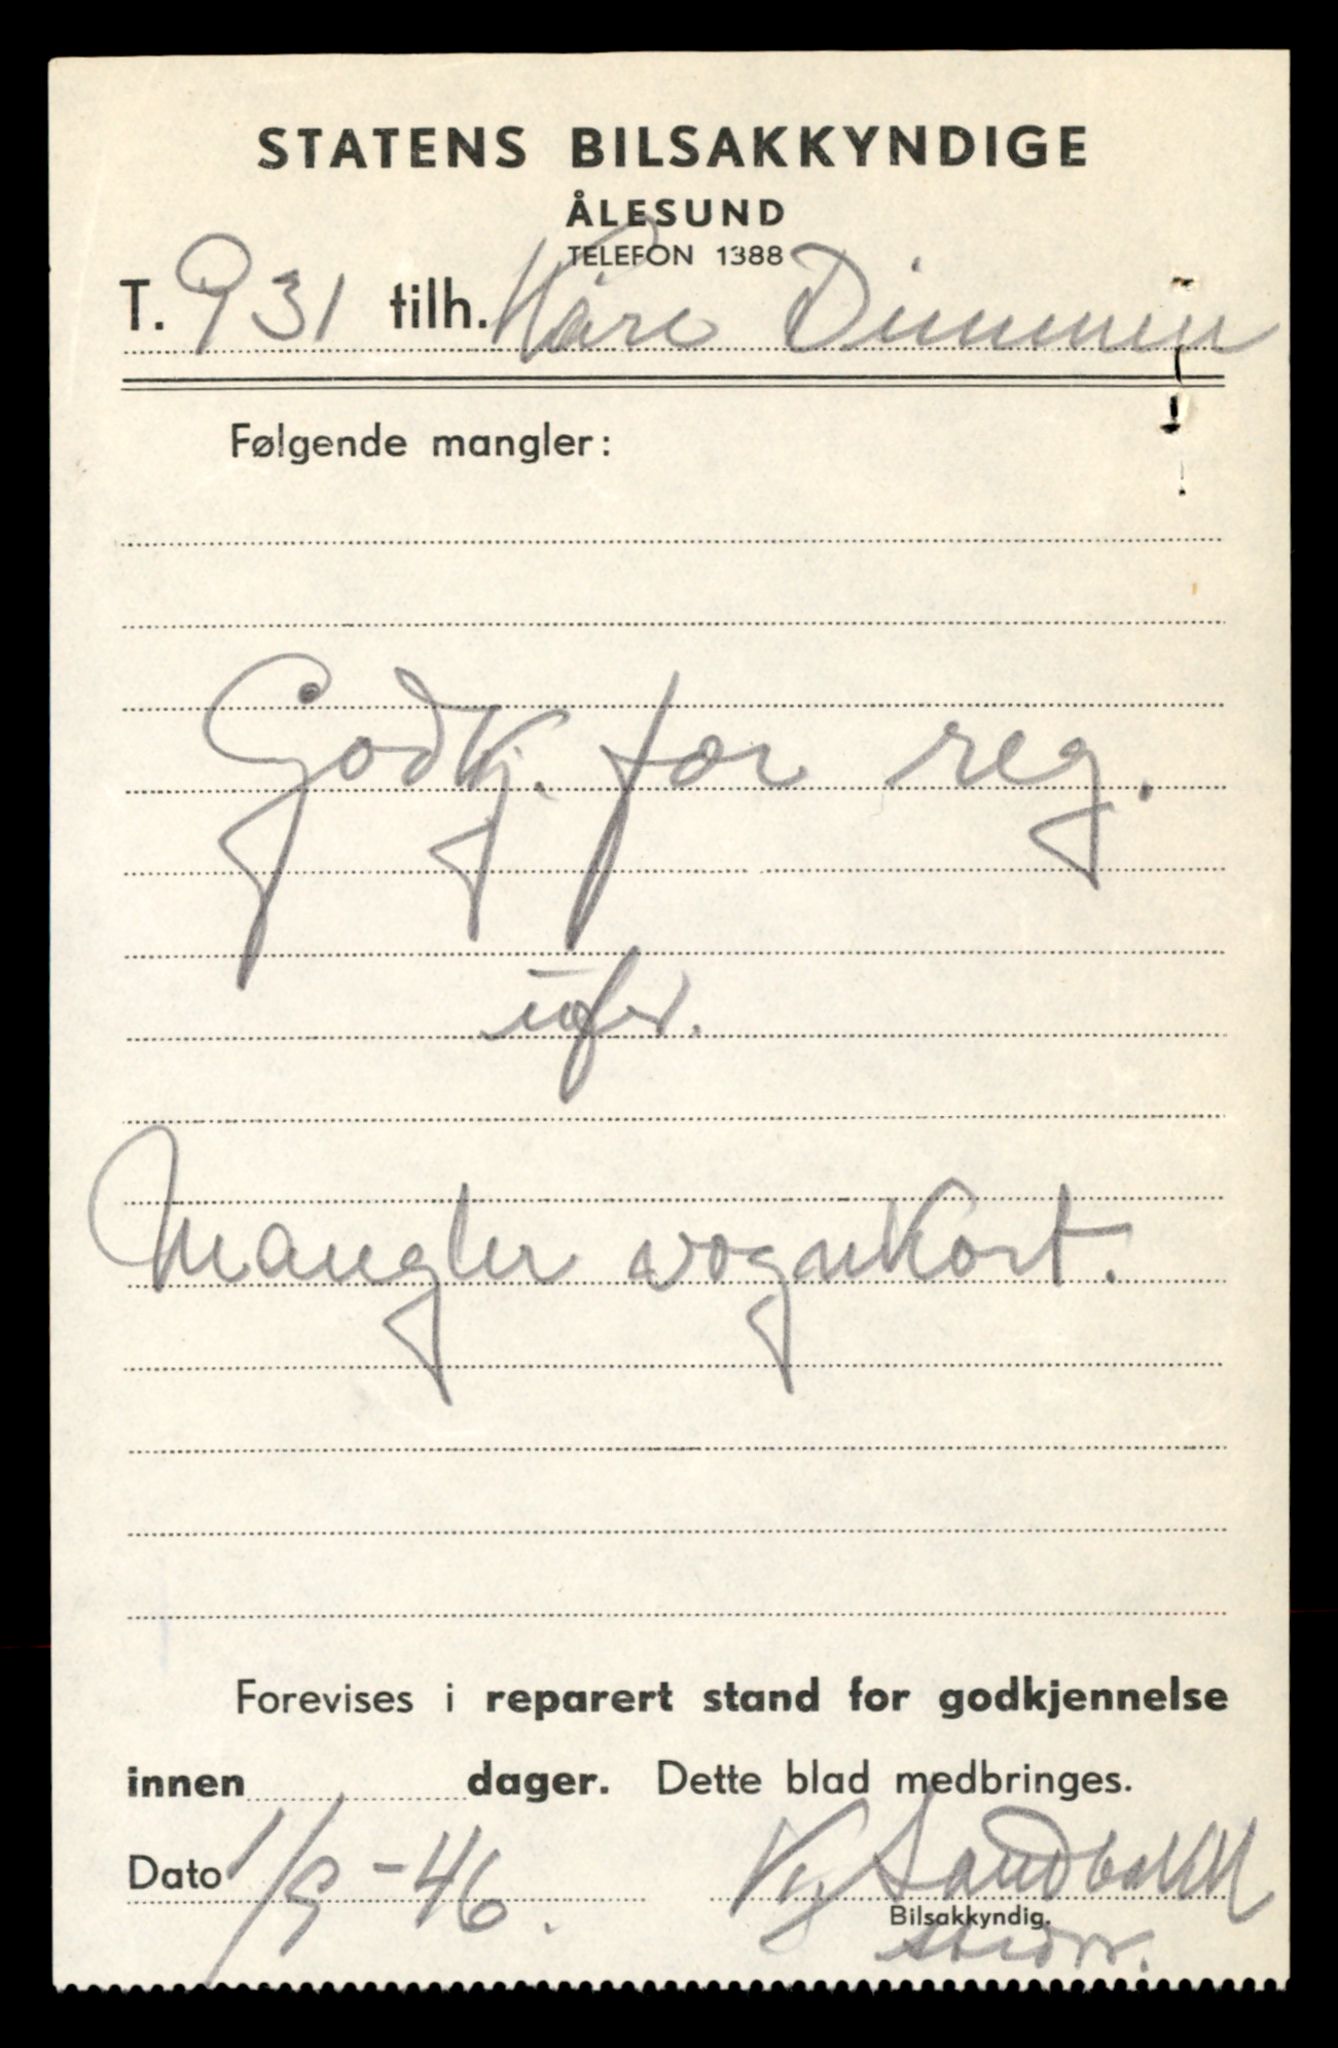 STATENS BILSAKKYNDIGE
ÅLESUND
TELEFON 1388
T. 931 tilh. Kåre Dimmen
Følgende mangler:
Godkj. for reg.
Mangler vognkort.
Forevises i reparert stand for godkjennelse
innen dager. Dette blad medbringes.
Dato 1/9-46.
Bilsakkyndig.